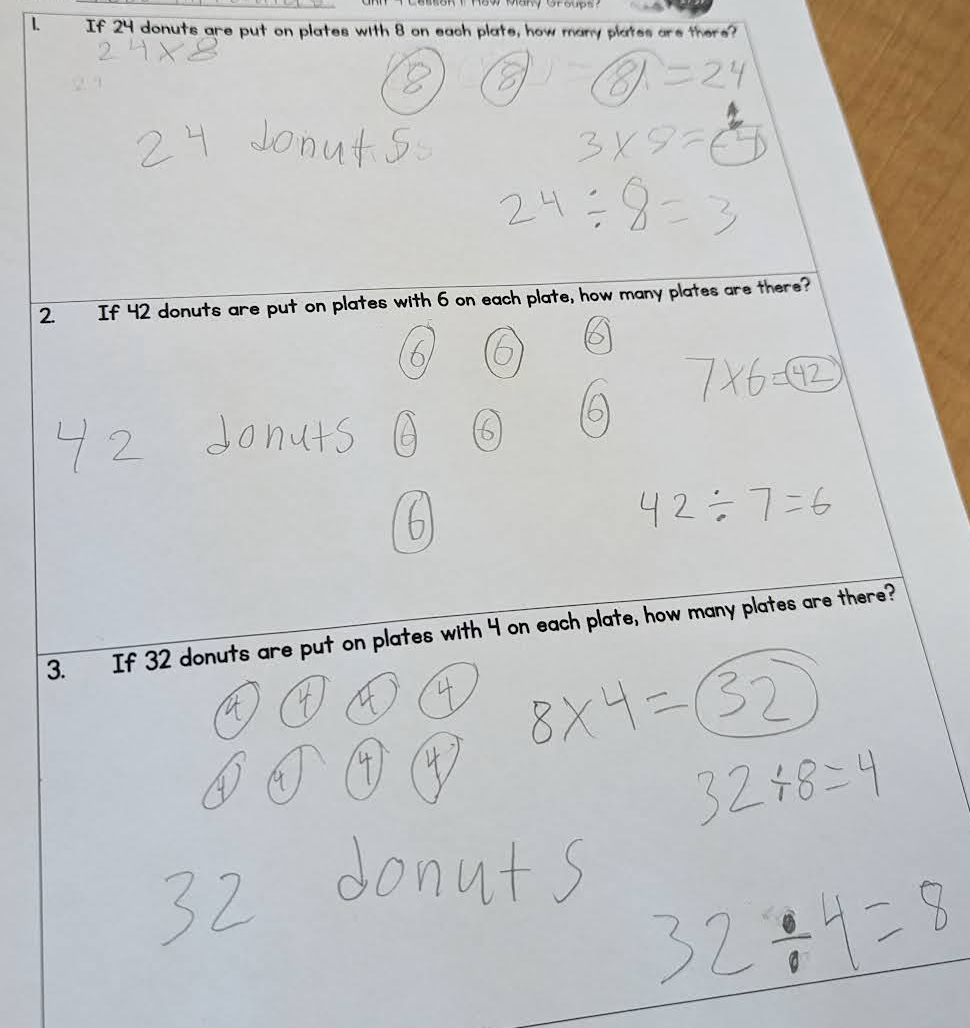 Unit 4 Lesson 1: How Many Groups?
1. If 24 donuts are put on plates with 8 on each plate, how many plates are there?
24×8
8 8 8 = 24
24 donuts
24 ÷ 8 = 3
2. If 42 donuts are put on plates with 6 on each plate, how many plates are there?
6 6 6
7×6=42
42 donuts 6 6 6
6
42 ÷ 7 = 6
3. If 32 donuts are put on plates with 4 on each plate, how many plates are there?
4 4 4 4
8×4=32
4 4 4 4
32÷8=4
32 donuts
32 ÷ 4 = 8